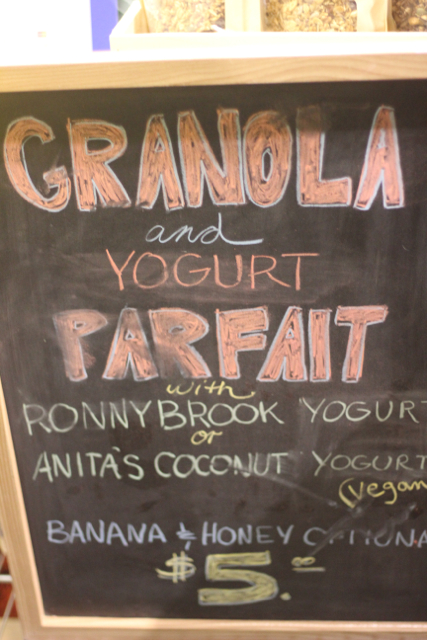 GRANOLA
and
YOGURT
PARFAIT
with
RONNYBROOK YOGURT
or
ANITA'S COCONUT YOGURT
(vegan
BANANA & HONEY OPTIONA
$5.00